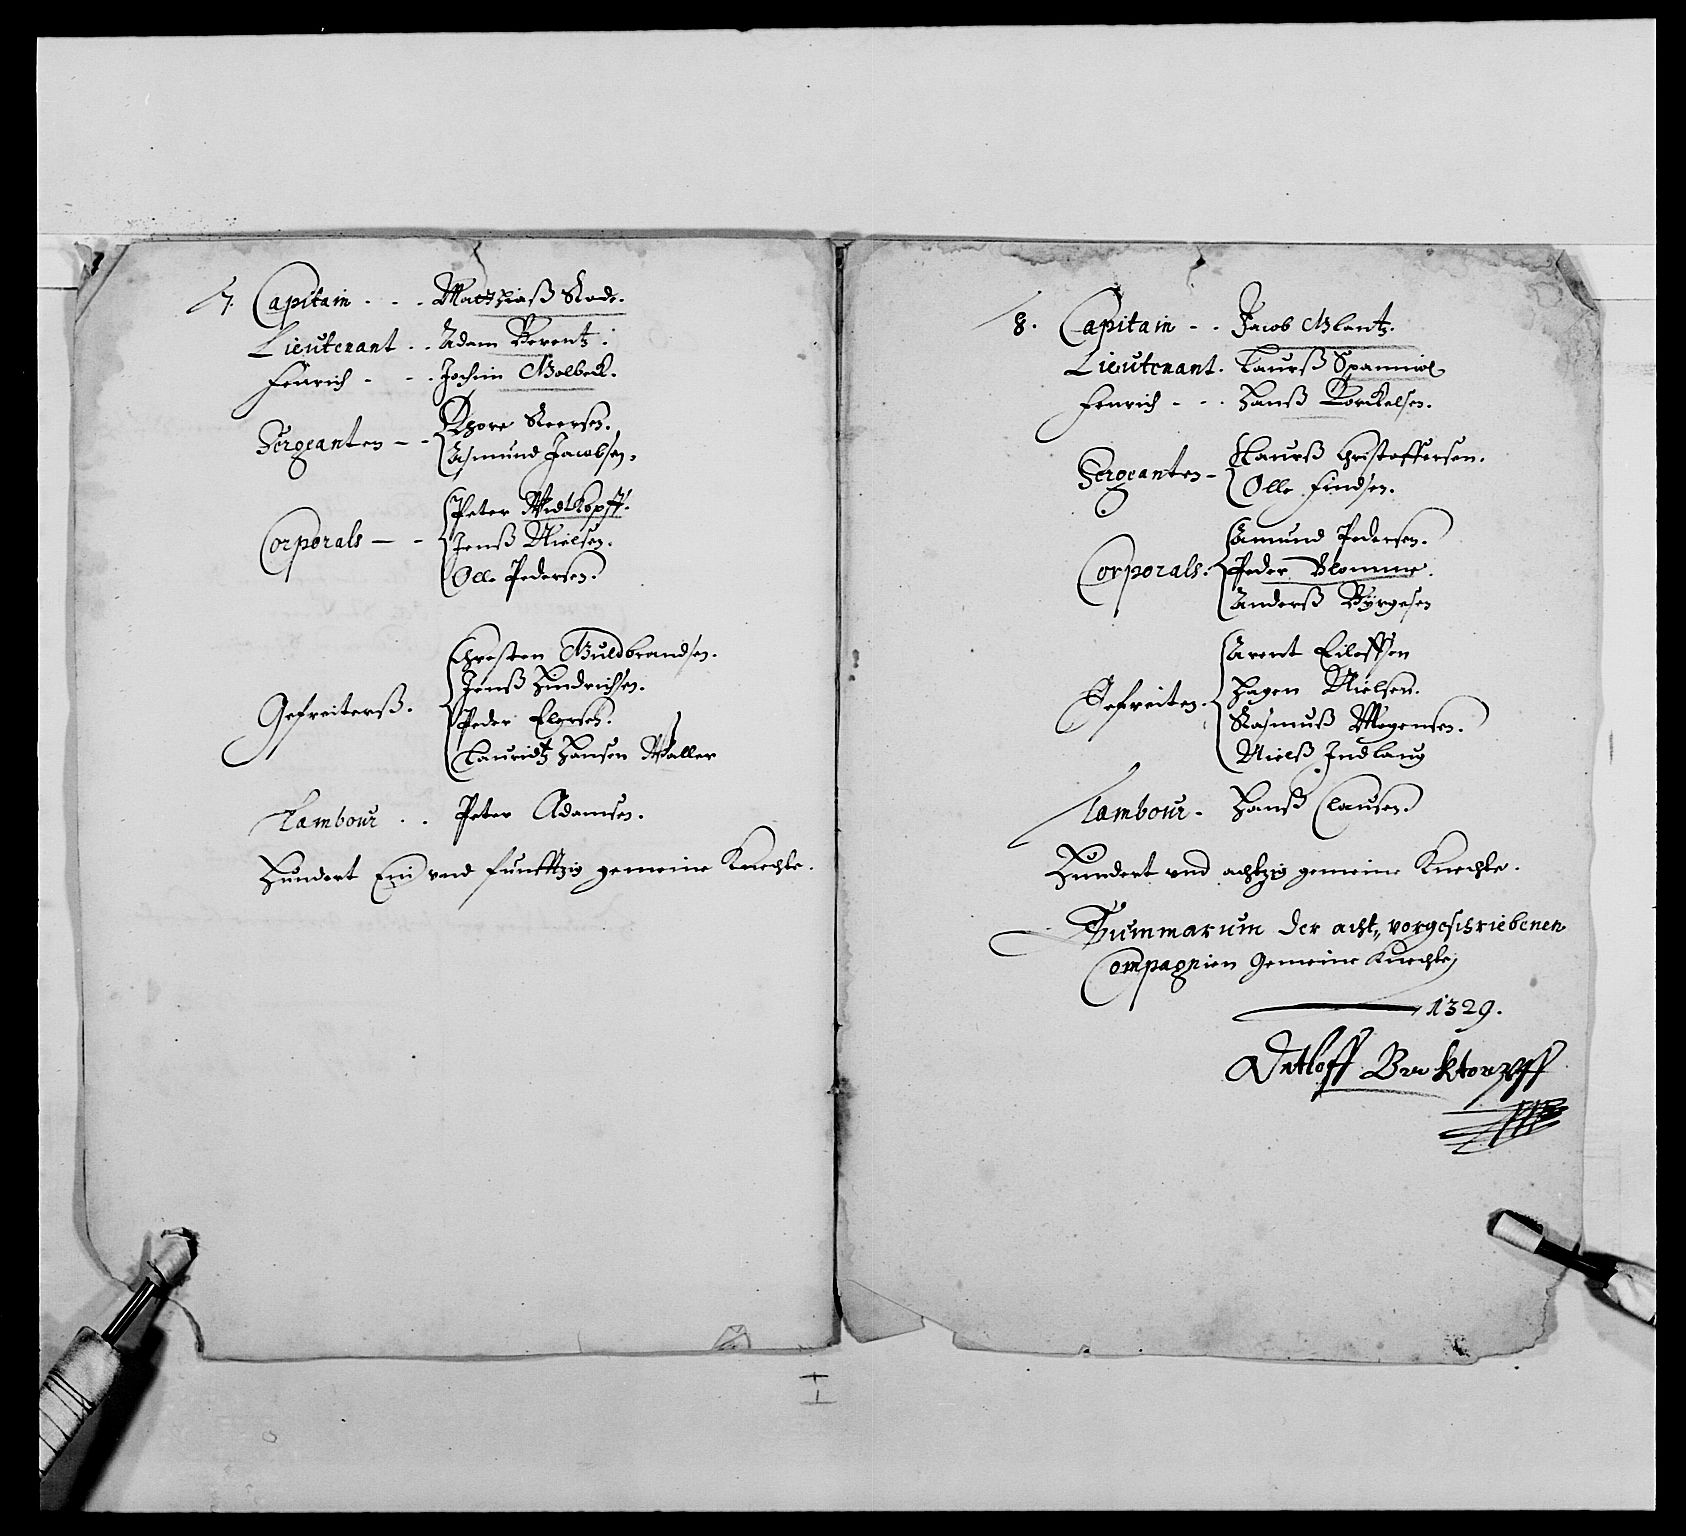 7. Capitain . . . Matthiaß Rode.
Lieutenant . . Adam Berentz.
Fenrich - - . Jochim Molbeck.
Sergeanten - - Thore Roersen.
Asmund Jacobsen.
Corporals - - Peter Widtkopff.
Jenß Nielsen.
Olle Pedersen.
Gefreiterß. Christen Guldbrandsen.
Jenß Hindrichsen.
Peder Elersen.
Lauridtz Hansen Maller
Tambour . . Peter Adamsen.
Hundert Ein und funfftzig gemeine Knechte.
8. Capitain - - Jacob Mantz.
Lieutenant. Laurß Spanniol
Fenrich - - . Hanß Torckelsen.
Sergeanten - Laurß Christoffersen.
Olle Findsen.
Corporals. Amund Pedersen.
Peder Blomme.
Anderß Byrgesen
Gefreiten. Arent Eileffsen
Hagen Nielsen.
Rasmuß Mogensen.
Nielß Indlaug
Tambour - Hanß Clausen.
Hundert und achtzig gemeine Knechte.
Summarum der acht, vorgeschriebenen
Compagnien Gemeine Knechte,
1329.
Detloff